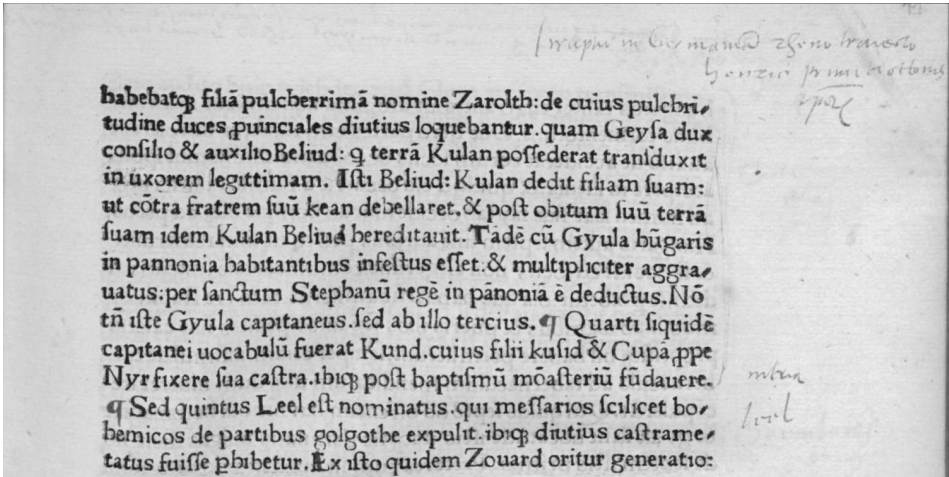 habebatqꝫ filiã pulcherrimã nomine Zarolth: de cuius pulchri⸗
tudine duces ꝓuinciales diutius loquebantur. quam Geysa dux
consilio & auxilio Beliud: q̃ terrã Kulan possederat transduxit
in uxorem legittimam. Isti Beliud: Kulan dedit filiam suam:
ut cõtra fratrem suũ kean debellaret. & post obitum suũ terrã
suam idem Kulan Beliud hereditauit. Tãdẽ cũ Gyula hũgaris
in pannonia habitantibus infestus esset. & multipliciter aggra⸗
uatus: per sanctum Stephanũ regẽ in pãnoniã ẽ deductus. Nõ
tñ iste Gyula capitaneus. sed ab illo tercius. ¶ Quarti siquidẽ
capitanei uocabulũ fuerat Kund. cuius filii kusid & Cupã ꝓpe
Nyr fixere sua castra. ibiqꝫ post baptismũ mõasteriũ fũdauere.
¶ Sed quintus Leel est nominatus. qui messarios scilicet bo⸗
hemicos de partibus golgothe expulit. ibiqꝫ diutius castrame⸗
tatus fuisse ꝑhibetur. Ex isto quidem Zouard oritur generatio:
in Germaniã rheno
leel